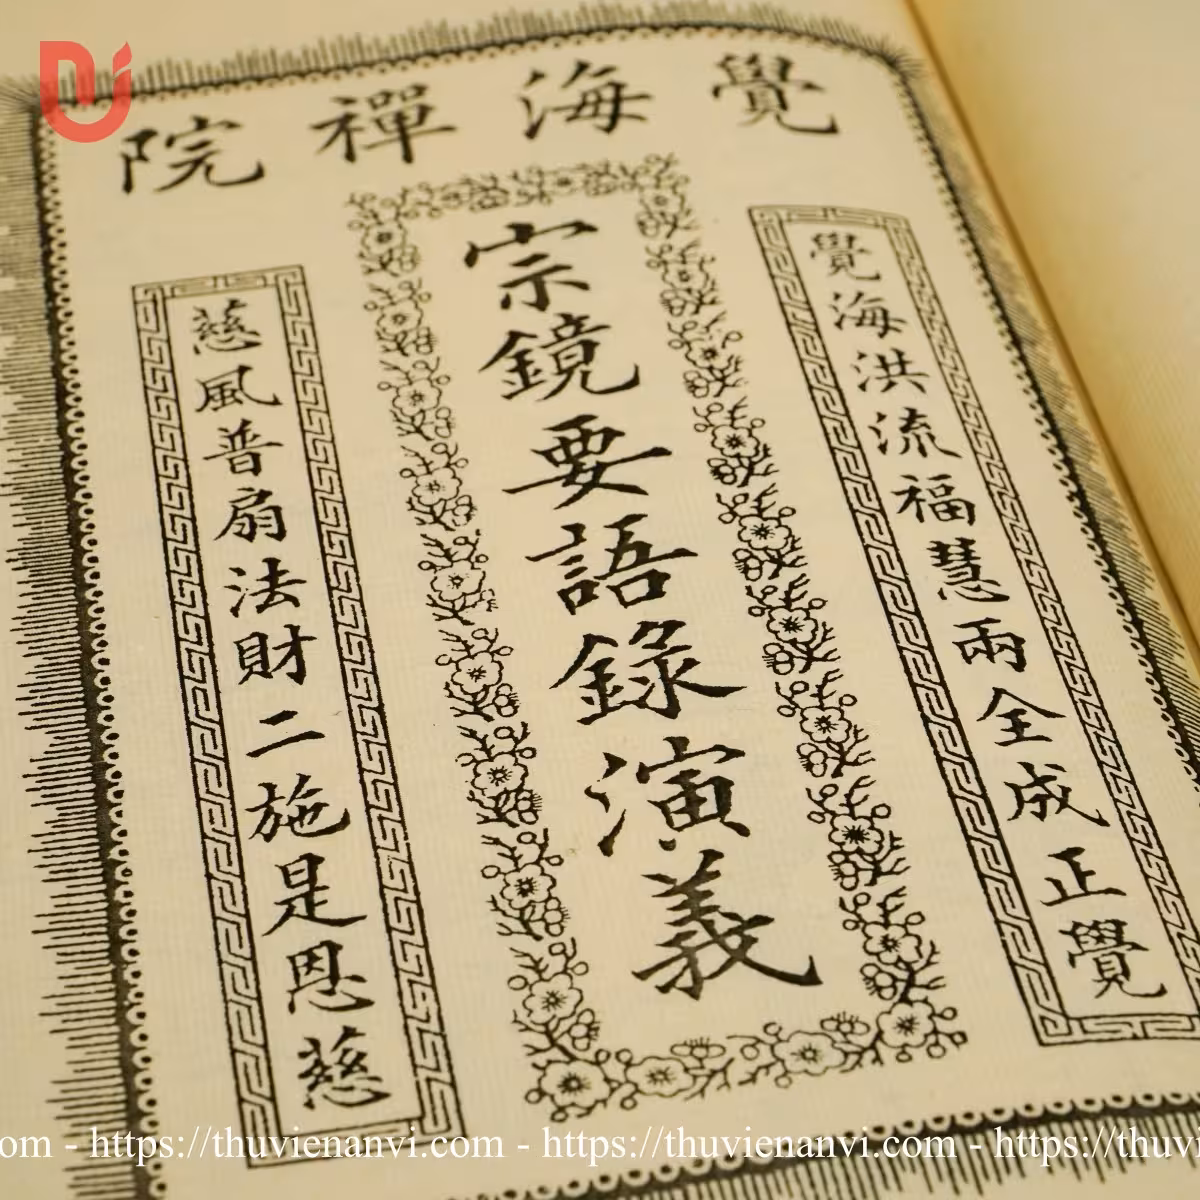 覺海禪院
覺海洪流福慧兩全成正覺
宗鏡要語錄演義
慈風普扇法財二施是恩慈
om - https://thuvienanvi.com - https://thuvienanvi.com - https://thuvi